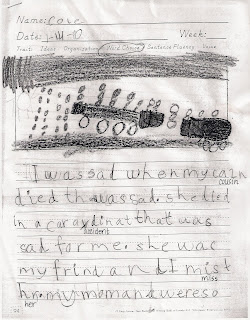 Name: Core
Date: 1-11-10 Week:
Trait: Ideas Organization Word Choice Sentence Fluency Voice
I was sad when my cazn
cousin
died thwassad. she died
in a caraxydinat that was
accident
sad for me. she was
my frind and I mist
miss
hr. my mom and we re so
her